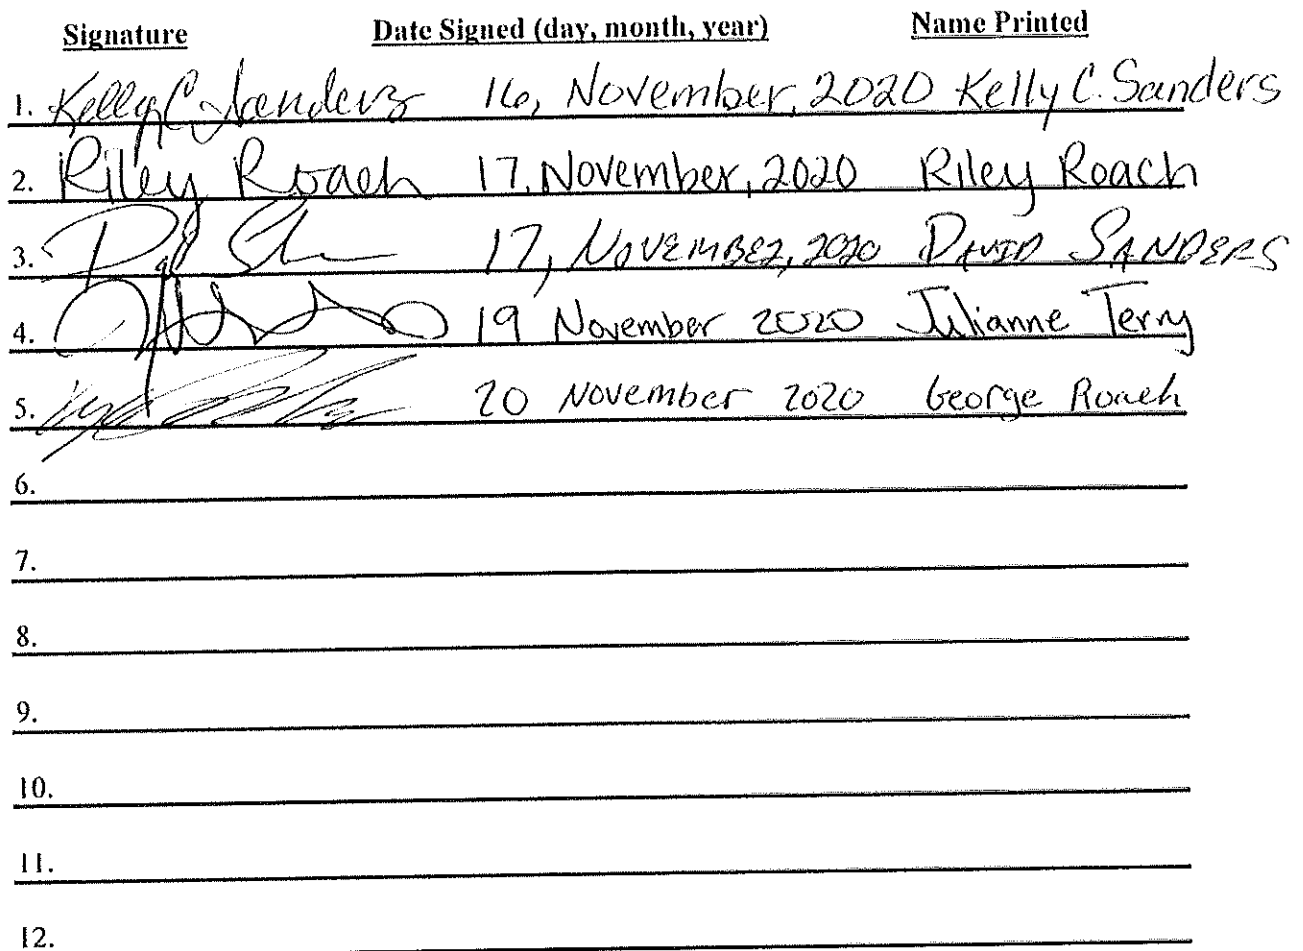 Signature Date Signed (day, month, year) Name Printed
1. Kelly C Sanders 16, November, 2020 Kelly C. Sanders
2. Riley Roach 17, November, 2020 Riley Roach
3. 17, NOVEMBER, 2020 DAVID SANDERS
4. 19 November 2020 Julianne Terry
5. 20 November 2020 George Roach
6.
7.
8.
9.
10.
11.
12.